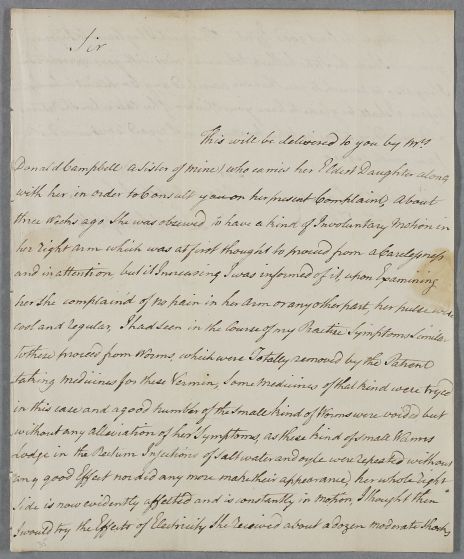 Sir
This will be delivered to you by Mrs
Donald Campbell (a Sister of mine) who carries her Eldest Daughter along
with her in order to Consult you on her present Complaint, About
three Weeks ago She was observed to have a kind of Involuntary Motion in
her right Arm which was at first thought to proceed from a Carelessness
and inattention but it Increasing I was informed of it, upon Examining
her She complain'd of no pain in her Arm or any other part, her pulse were
cool and regular, I had seen in the course of my Practise Symptoms Similar
to these proceed from Worms, which were Totally removed by the Patient
taking medicines for these Vermin, Some medicines of that kind were tryed
in this case and a good number of the Small kind of Worms were voided but
without any alleviation of her Symptoms, as these kind of small Worms
Lodge in the Rectum Injections of Salt water and oyle were repeated without
any good Effect nor did any more make their appearance, her whole right
Side is now evidently affected and is constantly in motion, I thought then
I would try the Effects of Electricity She received about a dozen moderate Shocks